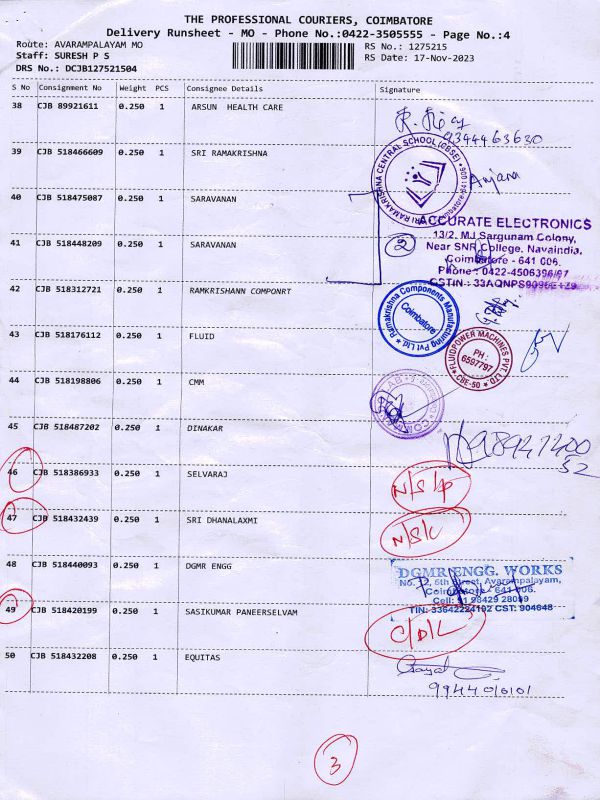 THE PROFESSIONAL COURIERS, COIMBATORE
Delivery Runsheet - MO - Phone No.:0422-3505555 - Page No.:4
Route: AVARAMPALAYAM MO
RS No.: 1275215
Staff: SURESH P S
RS Date: 17-Nov-2023
DRS No.: DCJB127521504
S No Consignment No Weight PCS Consignee Details Signature
38 CJB 89921611 0.250 1 ARSUN HEALTH CARE
9344463630
39 CJB 518466609 0.250 1 SRI RAMAKRISHNA
SRI RAMAKRISHNA CENTRAL SCHOOL (CBSE)
Anjana
40 CJB 518475087 0.250 1 SARAVANAN
ACCURATE ELECTRONICS
13/2, MJ Sargunam Colony,
41 CJB 518448209 0.250 1 SARAVANAN
2
Near SNR College, Navaindia,
Coimbatore - 641 006.
Phone: 0422-4506396/97
42 CJB 518312721 0.250 1 RAMKRISHANN COMPONRT
Ramakrishna Components Manufacturing Pvt Ltd.
Coimbatore
43 CJB 518176112 0.250 1 FLUID
FLUIDPOWER MACHINES PVT. LTD
PH :
6597797
CBE-50
44 CJB 518198806 0.250 1 CMM
45 CJB 518487202 0.250 1 DINAKAR
52
46 CJB 518386933 0.250 1 SELVARAJ
N/S/P
47 CJB 518432439 0.250 1 SRI DHANALAXMI
N/S/C
48 CJB 518440093 0.250 1 DGMR ENGG
DGMR ENGG. WORKS
No. 12, 6th Street, Avarampalayam,
Coimbatore - 641 006.
Cell: 91 98429 28099
TIN: 33642224192 CST: 904648
49 CJB 518420199 0.250 1 SASIKUMAR PANEERSELVAM
C/D/L
50 CJB 518432208 0.250 1 EQUITAS
9944010101
3